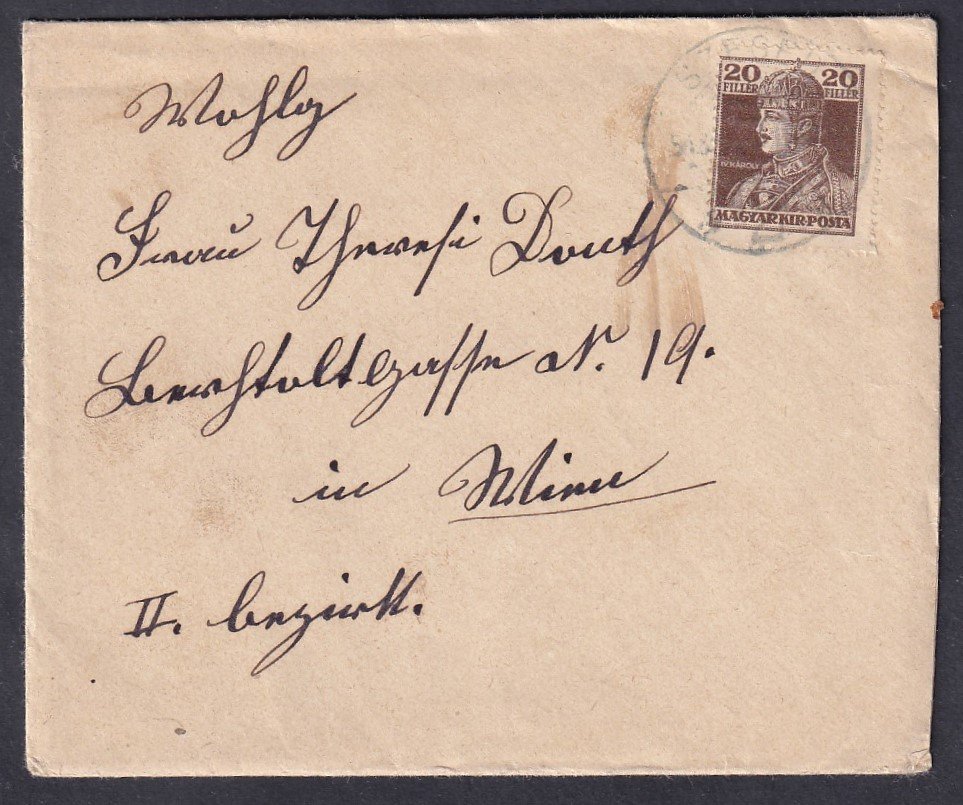 Wohlg
20 20
FILLÉR FILLÉR
IV. KÁROLY
MAGYAR KIR. POSTA
Frau Theresi Donth
Berchtoltgasse N. 19.
in Wien
II. bezirk.